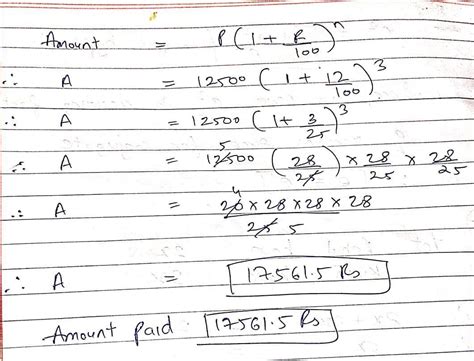 Amount = P(1 + R/100)^n
∴ A = 12500 (1 + 12/100)^3
∴ A = 12500 (1 + 3/25)^3
∴ A = 12500 5 (28/25) × 28/25 × 28/25
∴ A = 20 4 × 28 × 28 × 28 / 25 5
∴ A = 17561.5 Rs
Amount paid 17561.5 Rs